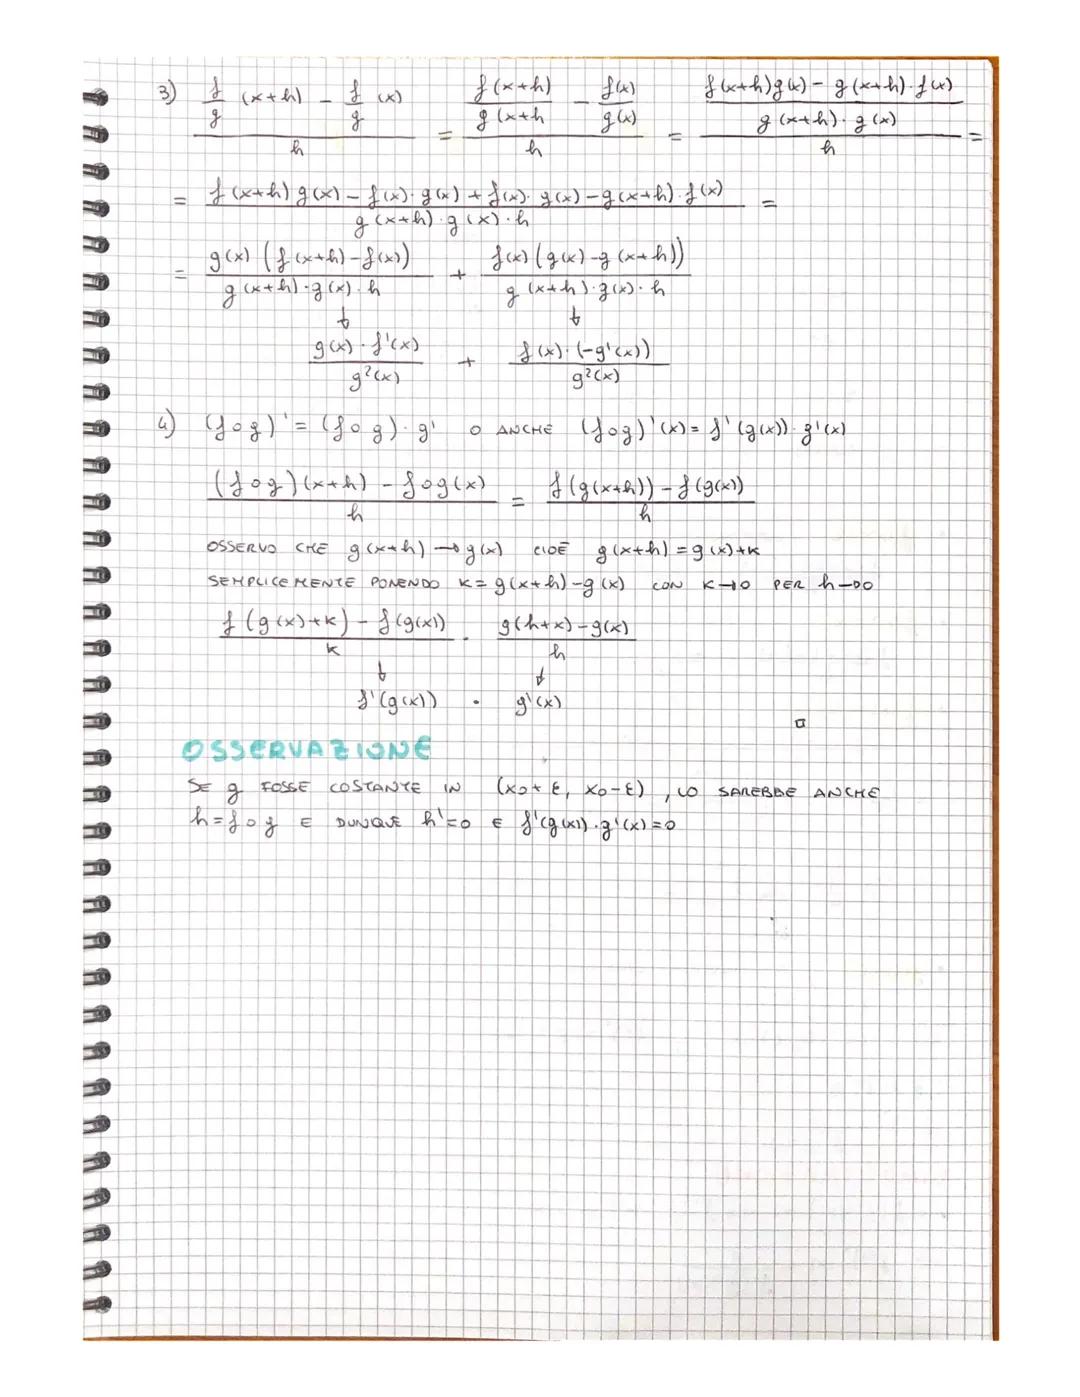 3) \frac{\frac{f}{g}(x+h) - \frac{f}{g}(x)}{h} = \frac{\frac{f(x+h)}{g(x+h} - \frac{f(x)}{g(x)}}{h} = \frac{\frac{f(x+h)g(x) - g(x+h)·f(x)}{g(x+h)·g(x)}}{h} =
= \frac{f(x+h)g(x) - f(x)·g(x) + f(x)·g(x) - g(x+h)·f(x)}{g(x+h)·g(x)·h} =
= \frac{g(x)(f(x+h) - f(x))}{g(x+h)·g(x)·h} + \frac{f(x)(g(x) - g(x+h))}{g(x+h)·g(x)·h}
↓ ↓
\frac{g(x)·f'(x)}{g²(x)} + \frac{f(x)·(-g'(x))}{g²(x)}
4) (f∘g)' = (f∘g)·g' O ANCHE (f∘g)'(x) = f'(g(x))·g'(x)
\frac{(f∘g)(x+h) - f∘g(x)}{h} = \frac{f(g(x+h)) - f(g(x))}{h}
OSSERVO CHE g(x+h) → g(x) CIOÈ g(x+h) = g(x)+K
SEMPLICEMENTE PONENDO K = g(x+h) - g(x) CON K→0 PER h→0
\frac{f(g(x)+K) - f(g(x))}{K} · \frac{g(h+x) - g(x)}{h}
↓ ↓
f'(g(x)) · g'(x)
□
OSSERVAZIONE
SE g FOSSE COSTANTE IN (x₀+ε, x₀-ε), LO SAREBBE ANCHE
h = f∘g E DUNQUE h'=0 E f'(g(x))·g'(x) = 0